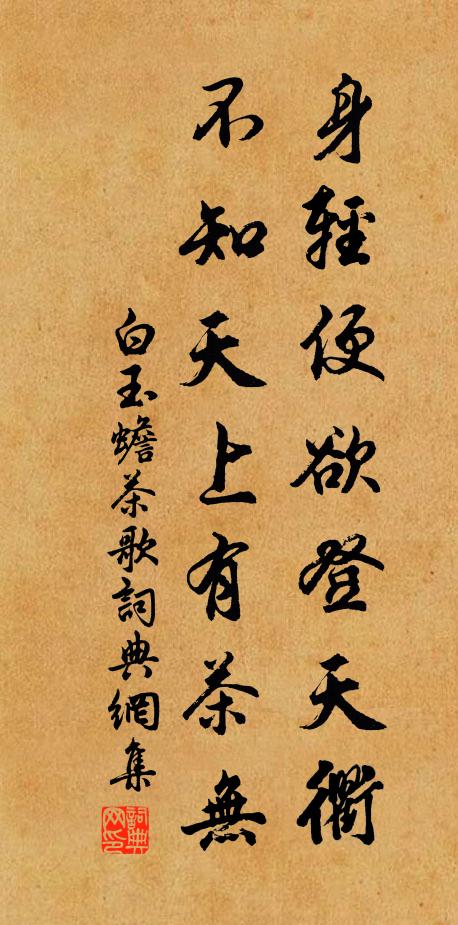 身輕便欲登天衢
不知天上有茶無
白玉蟾茶歌詞典網集
詞典网印